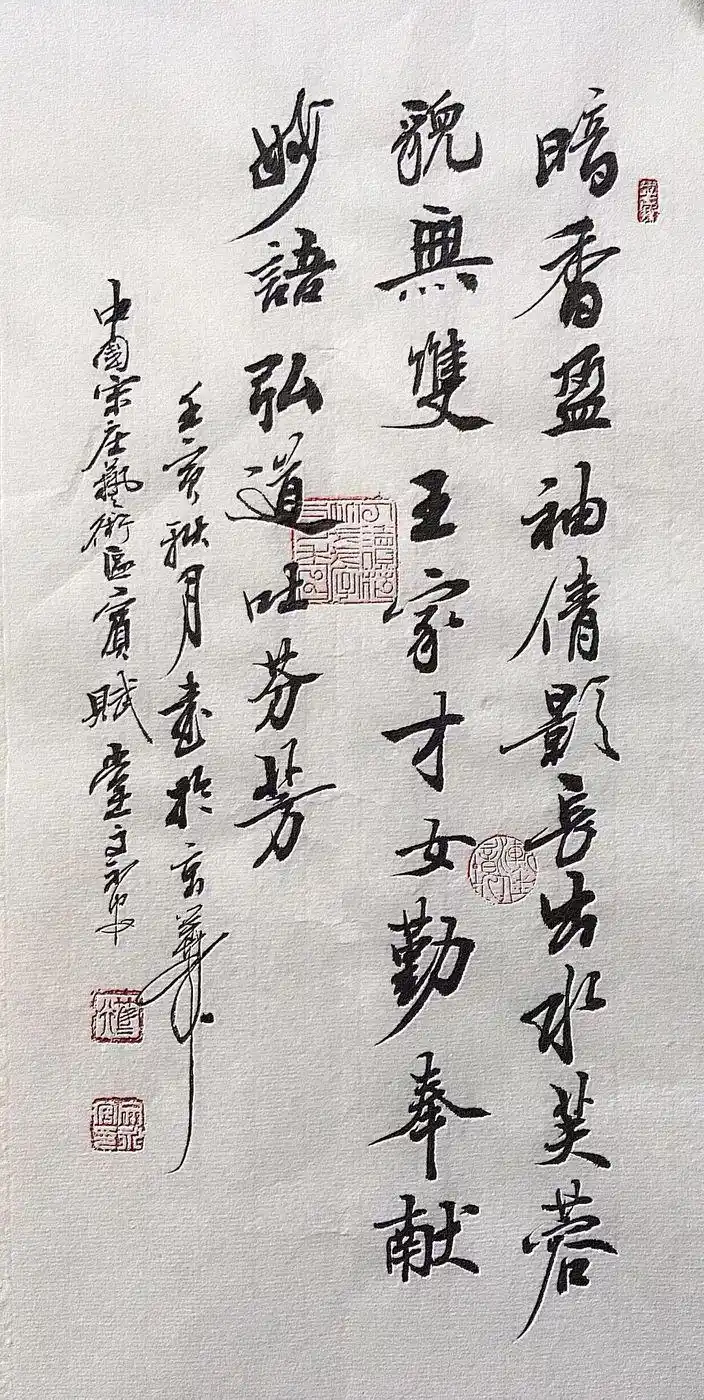 暗香盈袖倩影長出水芙蓉
貌無雙王家才女勤奉献
妙語弘道吐芬芳
壬寅秋月書於京華
中國宋庄藝術區賓賦堂